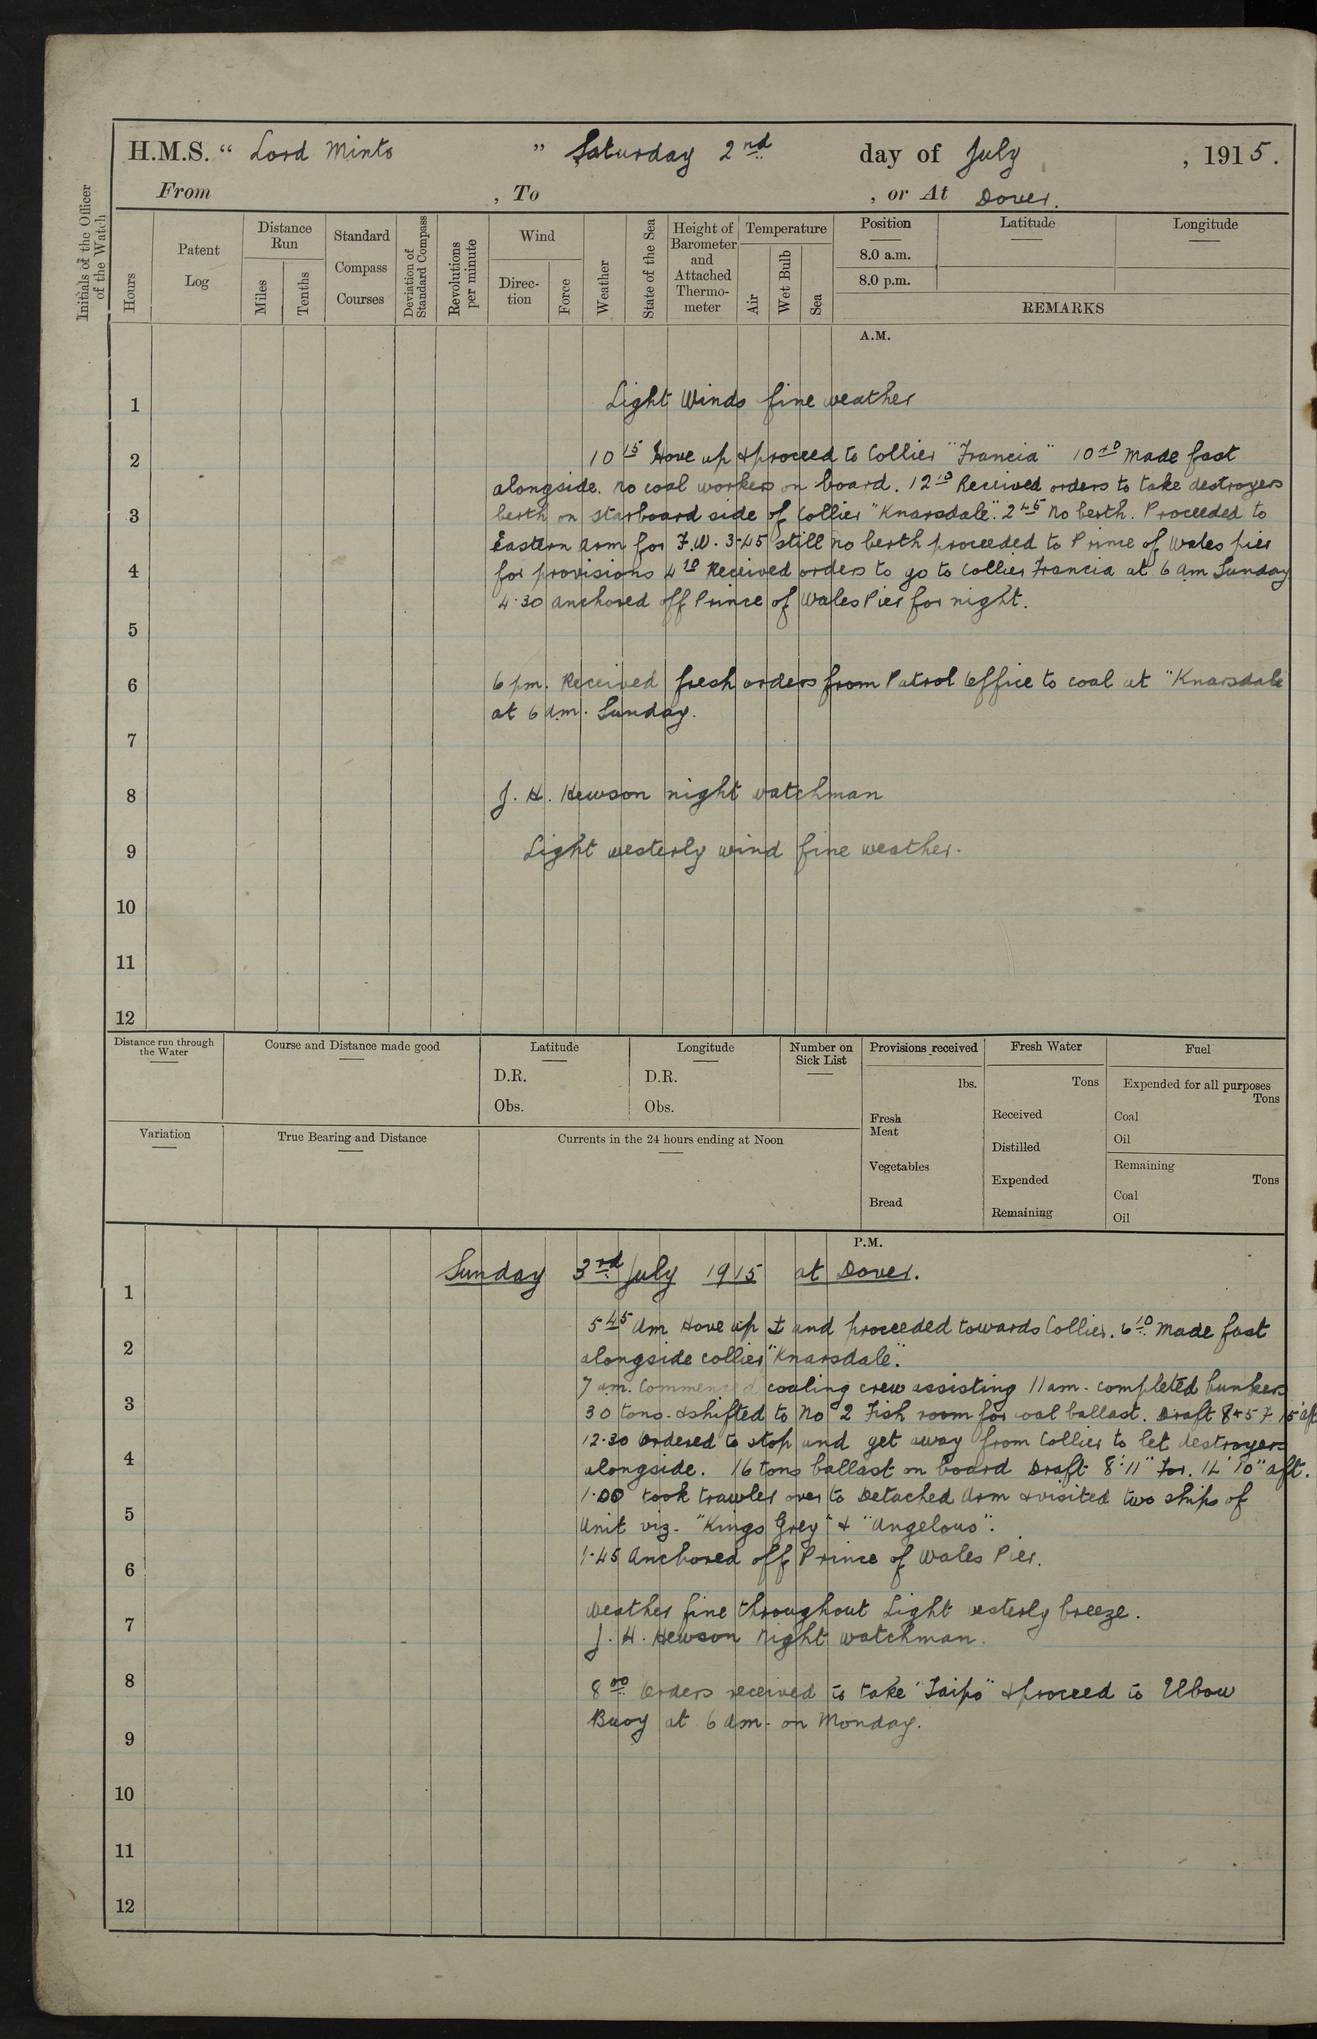 H.M.S. “ Lord Minto ” Saturday 2nd day of July , 1915.
From , To , or At Dover.
Initials of the Officer of the Watch
Hours
Patent Log
Distance Run
Miles
Tenths
Standard Compass Courses
Deviation of Standard Compass
Revolutions per minute
Wind
Direc-tion
Force
Weather
State of the Sea
Height of Barometer and Attached Thermo-meter
Temperature
Air
Wet Bulb
Sea
Position
8.0 a.m.
8.0 p.m.
Latitude
Longitude
REMARKS
A.M.
1 Light Winds fine weather
2 10 15 Hove up & proceed to Collier "Francia" 10 40 made fast
alongside. no coal workers on board. 12 10 Received orders to take destroyers
3 berth on starboard side of Collier "Knarsdale". 2 45 No berth. Proceeded to
Eastern arm for F.W. 3.45 still no berth proceeded to Prince of Wales pier
4 for provisions 4 10 Received orders to go to Collier Francia at 6 am Sunday
4.30 anchored off Prince of Wales Pier for night.
5
6 6 pm. Received fresh orders from Patrol Office to coal at "Knarsdale
at 6 am. Sunday.
7
8 J. H. Hewson night watchman
9 Light westerly wind fine weather.
10
11
12
Distance run through the Water
Course and Distance made good
Latitude
D.R.
Obs.
Longitude
D.R.
Obs.
Number on Sick List
Provisions received
lbs.
Fresh Meat
Vegetables
Bread
Fresh Water
Tons
Received
Distilled
Expended
Remaining
Fuel
Expended for all purposes
Tons
Coal
Oil
Remaining
Tons
Coal
Oil
Variation
True Bearing and Distance
Currents in the 24 hours ending at Noon
P.M.
Sunday 3rd July 1915 at Dover.
1
5 45 am Hove up and proceeded towards Collier. 6 10 made fast
2 alongside collier "Knarsdale".
7 am. Commenced coaling crew assisting 11 am. completed bunkers
3 30 tons. & shifted to No 2 Fish room for coal ballast. Draft
12.30 Ordered to stop and get away from Collier to let destroyers
4 alongside. 16 tons ballast on board Draft 8' 11" For. 14' 10" aft.
1.00 took trawler over to Detached Arm & visited two ships of
5 Unit viz. "Kings Grey" & "Angelous".
1.45 Anchored off Prince of Wales Pier.
6
weather fine throughout Light westerly breeze.
7 J. H. Hewson Night watchman.
8 8 00 Orders received to take "Taipo" & proceed to Elbow
Buoy at 6 am. on Monday.
9
10
11
12